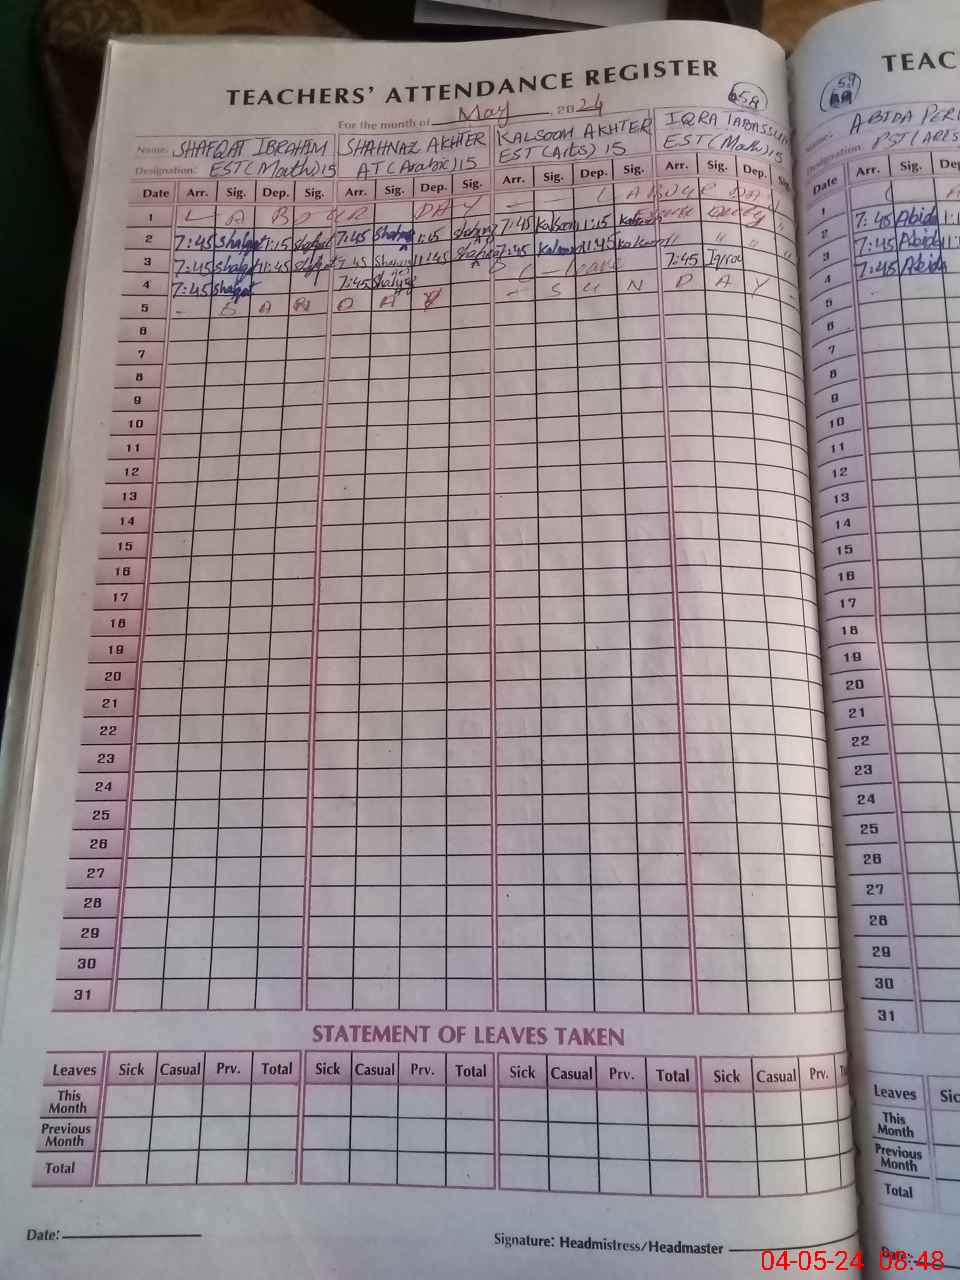 TEACHERS' ATTENDANCE REGISTER
For the month of May, 2024
58
Name: SHAFQAT IBRAHIM SHAHNAZ AKHTER KALSOOM AKHTER IQRA TABASSUM
Designation: EST(Math)15 AT(Arabic)15 EST(Arts) 15 EST(Math)15
Date Arr. Sig. Dep. Sig. Arr. Sig. Dep. Sig. Arr. Sig. Dep. Sig. Arr. Sig. Dep. Sig.
1 L A B O U R DAY - - L A B O U R DAY
2 7:45 Shafqat 1:15 Shafqat 7:45 Shahnaz 1:15 Shahnaz 7:45 Kalsoom 1:15 Kalsoom
3 7:45 Shafqat 11:45 Shafqat 7:45 Shahnaz 11:45 Shahnaz 7:45 Kalsoom 11:45 Kalsoom " " "
4 7:45 Shafqat 7:45 Shahnaz C - leave 7:45 Iqra
5 - - S U N D A Y -
6
7
8
9
10
11
12
13
14
15
16
17
18
19
20
21
22
23
24
25
26
27
28
29
30
31
STATEMENT OF LEAVES TAKEN
Leaves Sick Casual Prv. Total Sick Casual Prv. Total Sick Casual Prv. Total Sick Casual Prv.
This Month
Previous Month
Total
Date:
Signature: Headmistress/Headmaster
TEAC
59
Name: ABIDA PER
Designation: PST(
Date Arr. Sig. Dep
1
2 7:45 Abida 1:1
3 7:45 Abida 11
4 7:45 Abida
5
6
7
8
9
10
11
12
13
14
15
16
17
18
19
20
21
22
23
24
25
26
27
28
29
30
31
Leaves Sic
This Month
Previous Month
Total
Date:
04-05-24 08:48